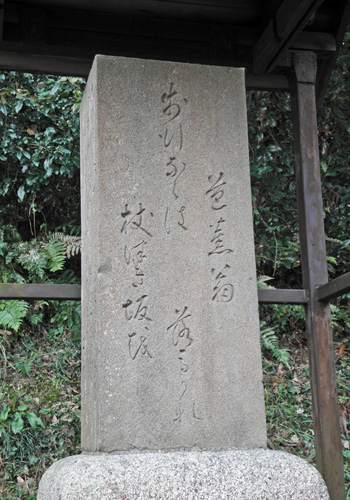 芭蕉翁
歩行ならは
杖つき坂を
落馬かな